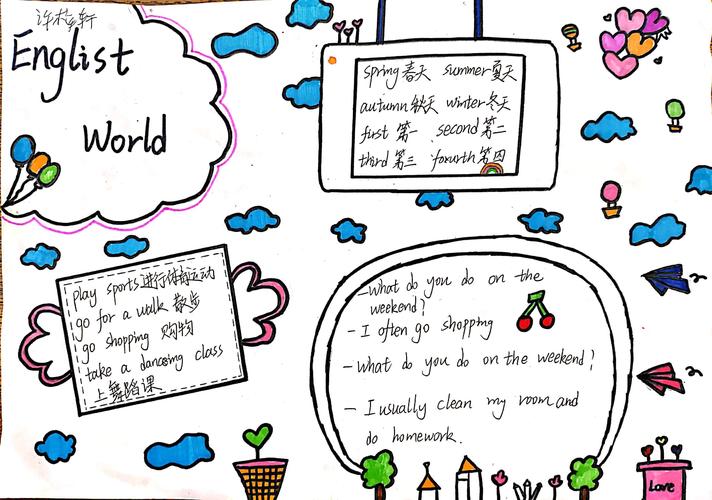 Englist
World
spring 春天 summer 夏天
autumn 秋天 winter 冬天
first 第一 second 第二
third 第三 fourth 第四
play sports 进行体育运动
go for a walk 散步
go shopping 购物
take a danceing class
上舞蹈课
—What do you do on the
weekend?
— I often go shopping
— What do you do on the weekend?
— I usually clean my room and
do homework.
Love